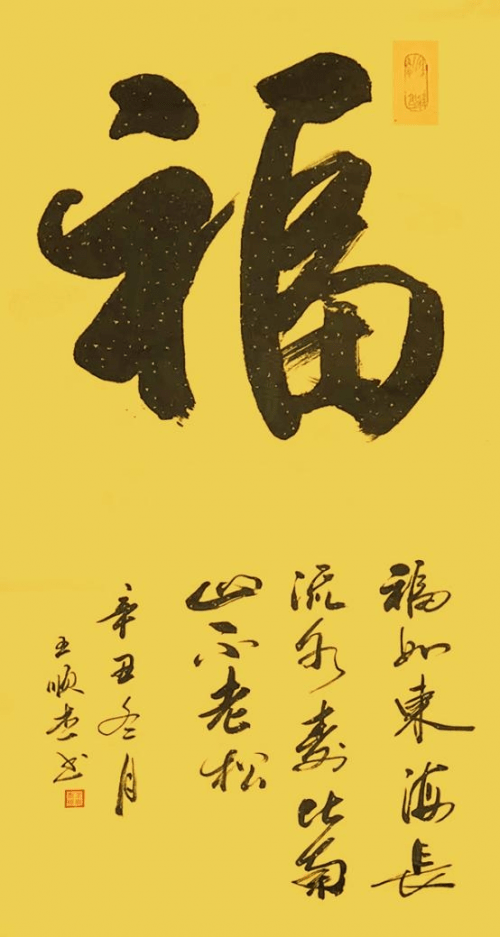 福
福如東海長
流水寿比南
山不老松
辛丑冬月
王順杰书